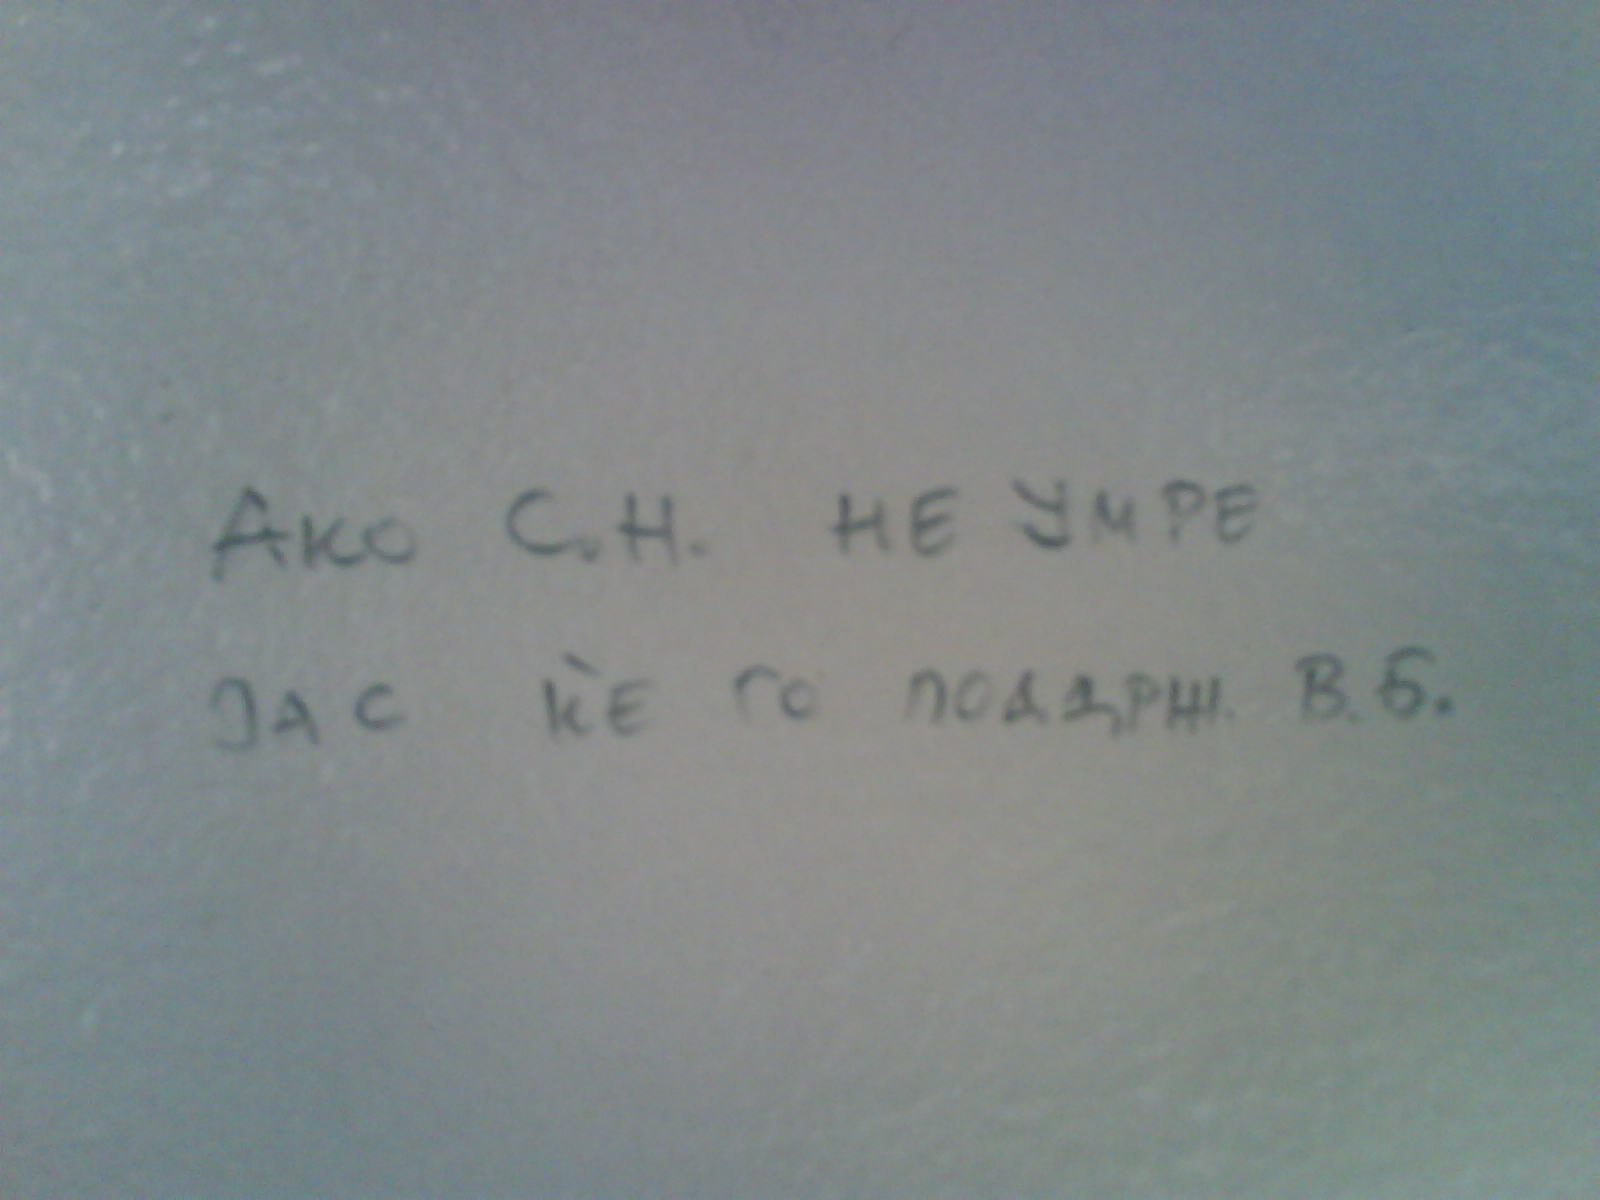 Ако С.Н. НЕ УМРЕ
ЈАС ЌЕ ГО ПОДДРЖ. В.Б.